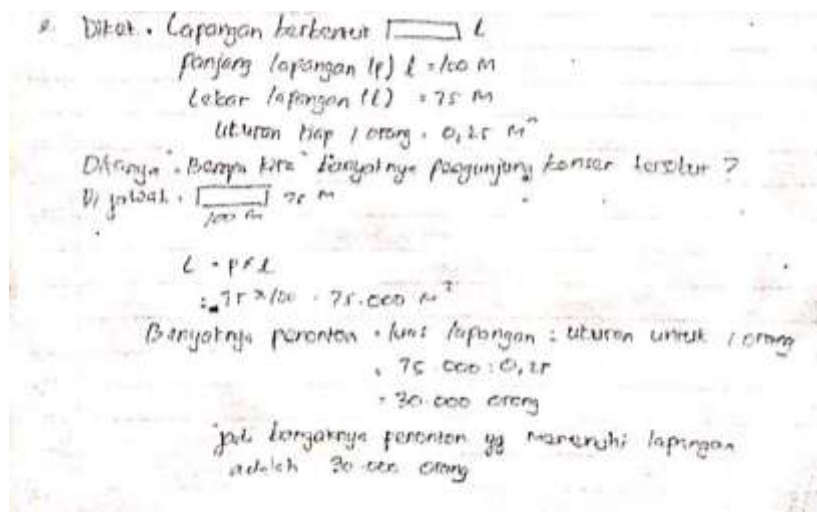 Diket. Lapangan berbentuk l
Panjang lapangan (p) l = 100 M
Lebar lapangan (l) = 75 M
Ukuran tiap 1 orang = 0,25 M²
Ditanya : Berapa kira" banyaknya pengunjung konser tersebut ?
Di jawab. 75 M
100 M
L = p x l
= 75 x 100 = 75.000 M²
Banyaknya penonton = luas lapangan : ukuran untuk 1 orang
= 75.000 : 0,25
= 30.000 orang
jadi banyaknya penonton yg memenuhi lapangan
adalah 30.000 orang